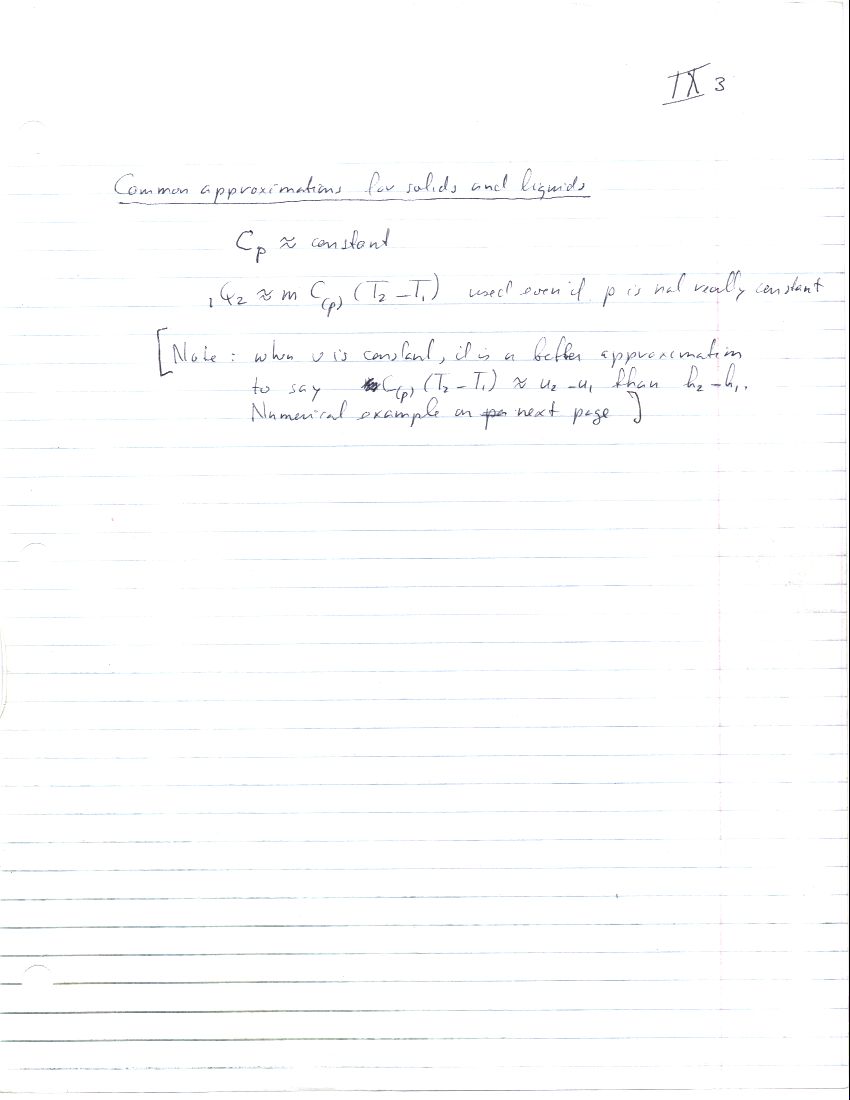 IX 3
Common approximations for solids and liquids
Cp ≈ constant
₁Q₂ ≈ m C(p) (T₂ – T₁) used even if p is not really constant
[Note: when v is constant, it is a better approximation
to say C(p) (T₂ – T₁) ≈ u₂ – u₁ than h₂ – h₁.
Numerical example on next page ]